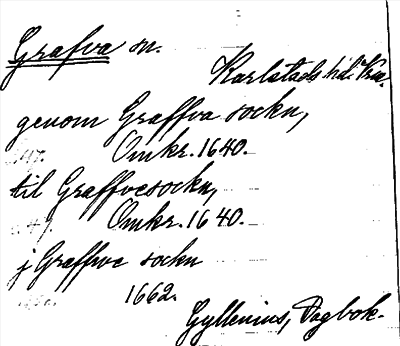 Grafva sn.
Karlstads hd. Kra.
genom Graffva sockn,
Omkr. 1640.
til Graffvesockn,
Omkr. 1640.
j Graffwe sockn
1662.
Gyllenius, Dagbok.